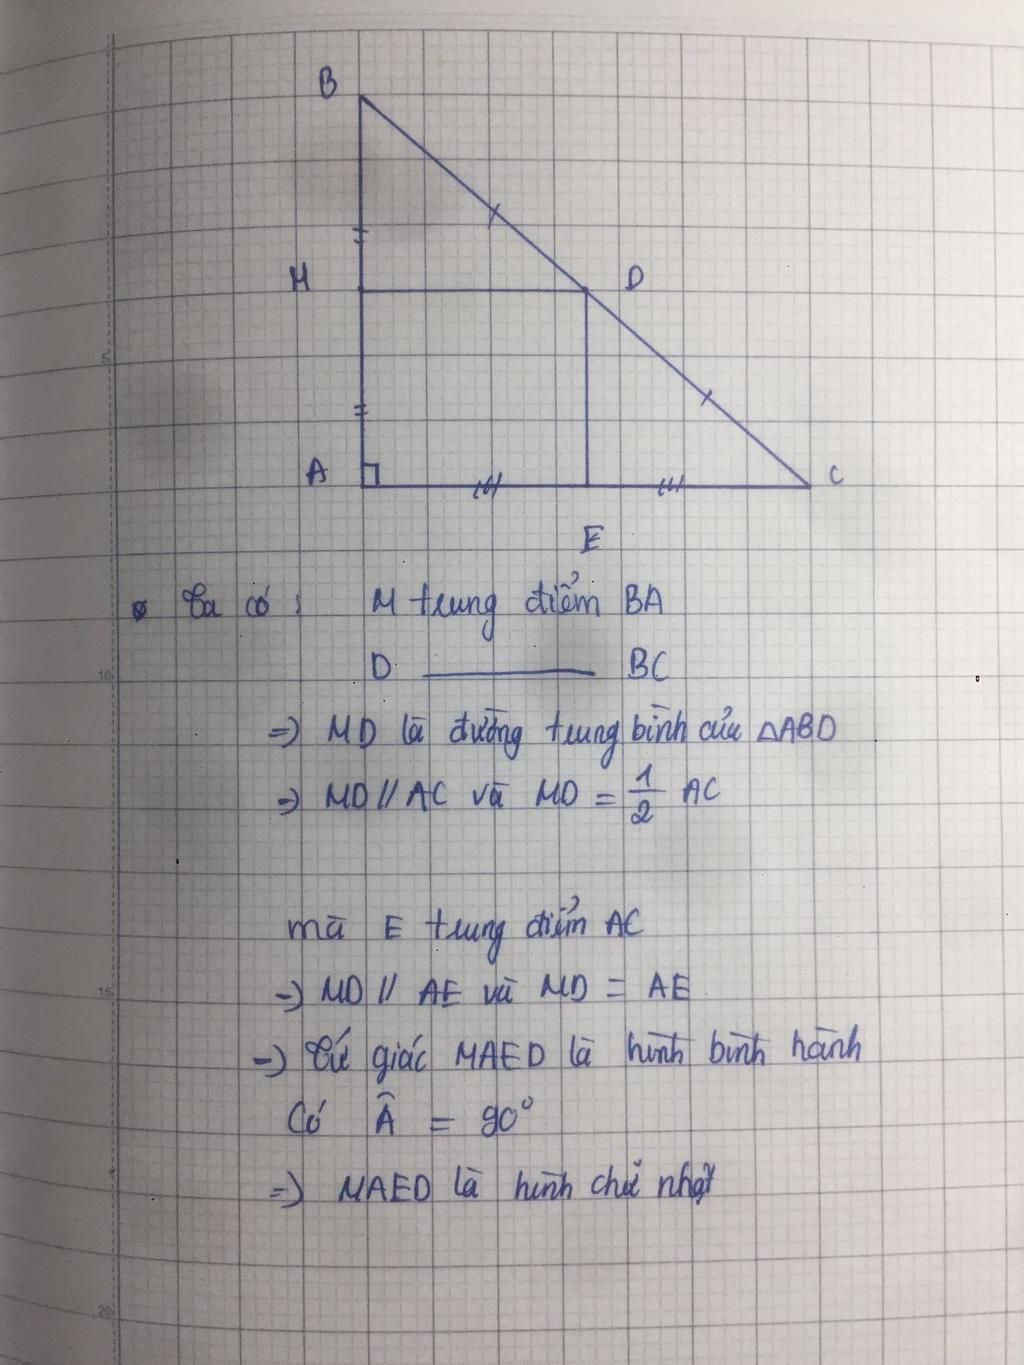 B
M D
A C
E
Ta có : M trung điểm BA
D ———— BC
=) MD là đường trung bình của △ABD
=) MD // AC và MD = 1/2 AC
mà E trung điểm AC
=) MD // AE và MD = AE
=) Tứ giác MAED là hình bình hành
Có Â = 90°
=) MAED là hình chữ nhật
5
10
15
20